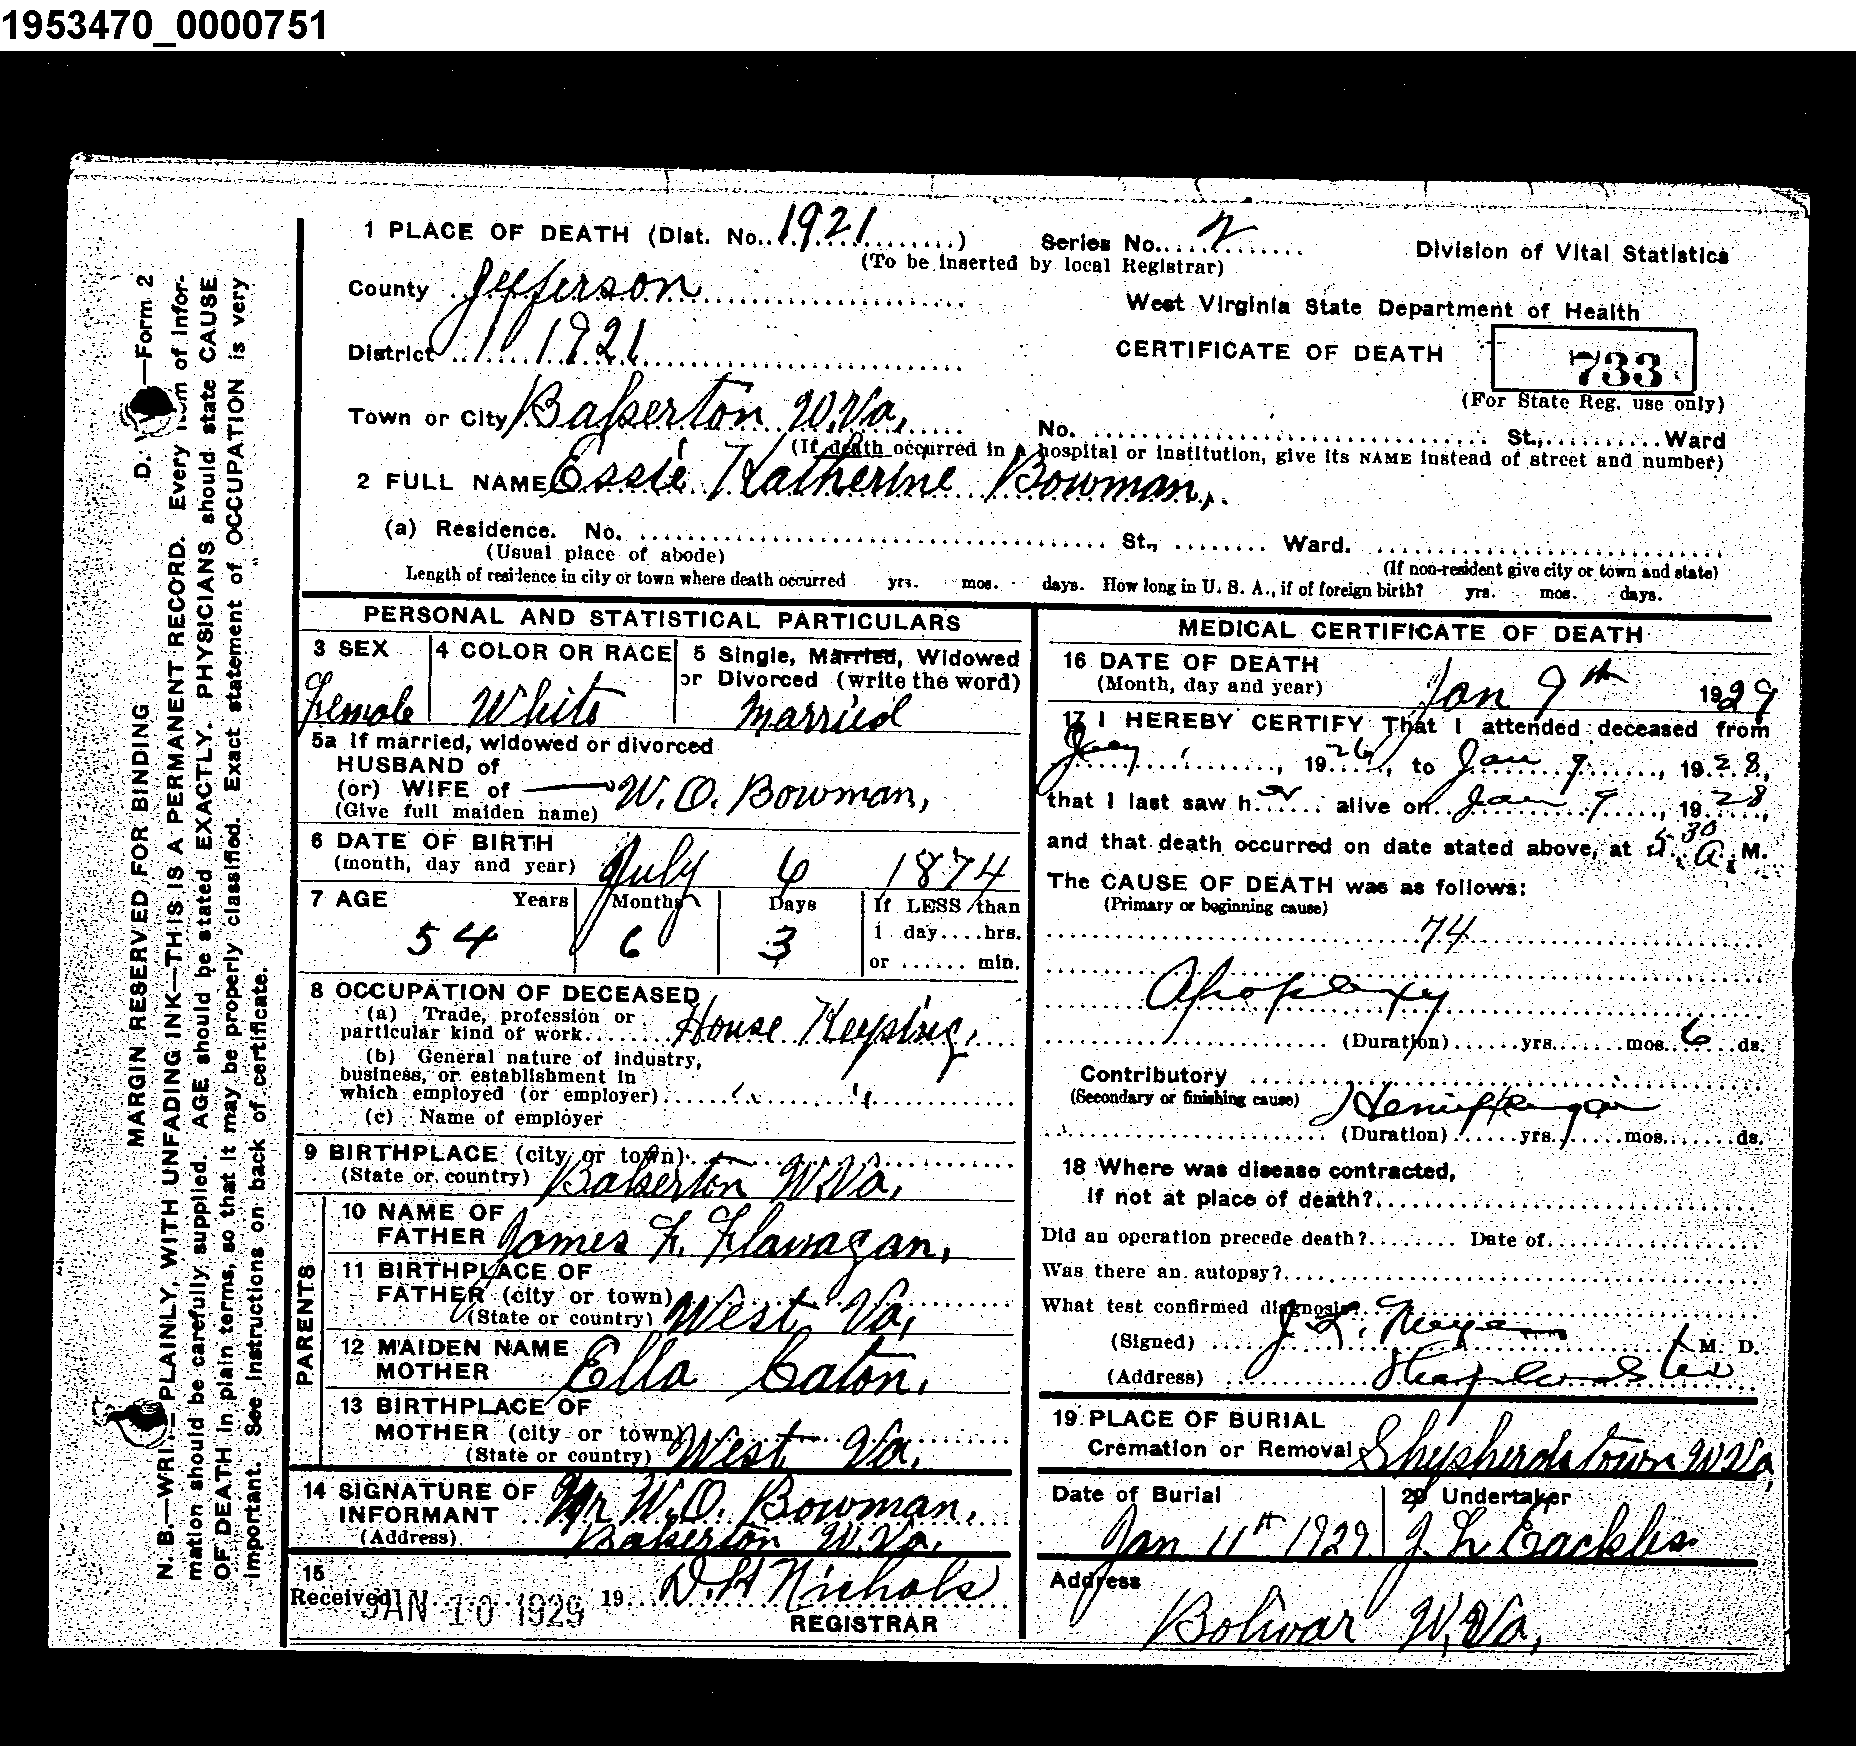 1953470_0000751
1 PLACE OF DEATH (Dist. No. 1921 ) Series No. 2
(To be inserted by local Registrar)
Division of Vital Statistics
County Jefferson
West Virginia State Department of Health
District 1921
CERTIFICATE OF DEATH
733
(For State Reg. use only)
Town or City Bakerton W.Va,
No. St., Ward
(If death occurred in a hospital or institution, give its NAME instead of street and number)
2 FULL NAME Essie Katherine Bowman,
(a) Residence. No. St., Ward.
(Usual place of abode)
(If non-resident give city or town and state)
Length of residence in city or town where death occurred yrs. mos. days. How long in U. S. A., if of foreign birth? yrs. mos. days.
PERSONAL AND STATISTICAL PARTICULARS
3 SEX
Female
4 COLOR OR RACE
White
5 Single, Married, Widowed
or Divorced (write the word)
Married
5a If married, widowed or divorced
HUSBAND of
(or) WIFE of W. O. Bowman,
(Give full maiden name)
6 DATE OF BIRTH
(month, day and year) July 6 1874
7 AGE Years Months Days
54 6 3
If LESS than
1 day....hrs.
or ...... min.
8 OCCUPATION OF DECEASED
(a) Trade, profession or
particular kind of work House Keeping,
(b) General nature of industry,
business, or establishment in
which employed (or employer) " "
(c) Name of employer
9 BIRTHPLACE (city or town)
(State or country) Bakerton W.Va,
PARENTS
10 NAME OF
FATHER James F. Flanagan,
11 BIRTHPLACE OF
FATHER (city or town)
(State or country) West Va,
12 MAIDEN NAME
MOTHER Ella Caton,
13 BIRTHPLACE OF
MOTHER (city or town)
(State or country) West Va,
14 SIGNATURE OF
INFORMANT Mr W.O. Bowman,
(Address) Bakerton W.Va.
15
Received JAN 10 1929 19 D.H Nichols
REGISTRAR
MEDICAL CERTIFICATE OF DEATH
16 DATE OF DEATH
(Month, day and year) Jan 9th 1929
17 I HEREBY CERTIFY That I attended deceased from
, 1926, to Jan 9, 1928,
that I last saw her alive on Jan 9, 1928,
and that death occurred on date stated above, at 5.30 A. M.
The CAUSE OF DEATH was as follows:
(Primary or beginning cause)
74
Apoplexy
(Duration) yrs. mos. 6 ds.
Contributory
(Secondary or finishing cause)
(Duration) yrs. mos. ds.
18 Where was disease contracted,
if not at place of death?
Did an operation precede death? Date of
Was there an autopsy?
What test confirmed diagnosis?
(Signed) M. D.
(Address)
19 PLACE OF BURIAL
Cremation or Removal Shepherdstown W.Va,
Date of Burial
Jan 11th 1929
20 Undertaker
Address
Bolivar W.Va,
D. —Form 2
MARGIN RESERVED FOR BINDING
N. B.—WRITE PLAINLY, WITH UNFADING INK—THIS IS A PERMANENT RECORD. Every item of infor-
mation should be carefully supplied. AGE should be stated EXACTLY. PHYSICIANS should state CAUSE
OF DEATH in plain terms, so that it may be properly classified. Exact statement of OCCUPATION is very
important. See instructions on back of certificate.